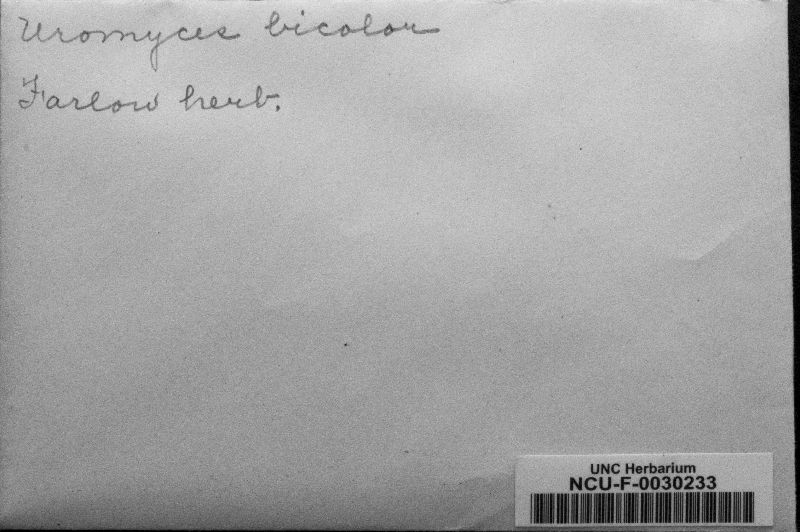 Uromyces bicolor
Farlow herb.
UNC Herbarium
NCU-F-0030233